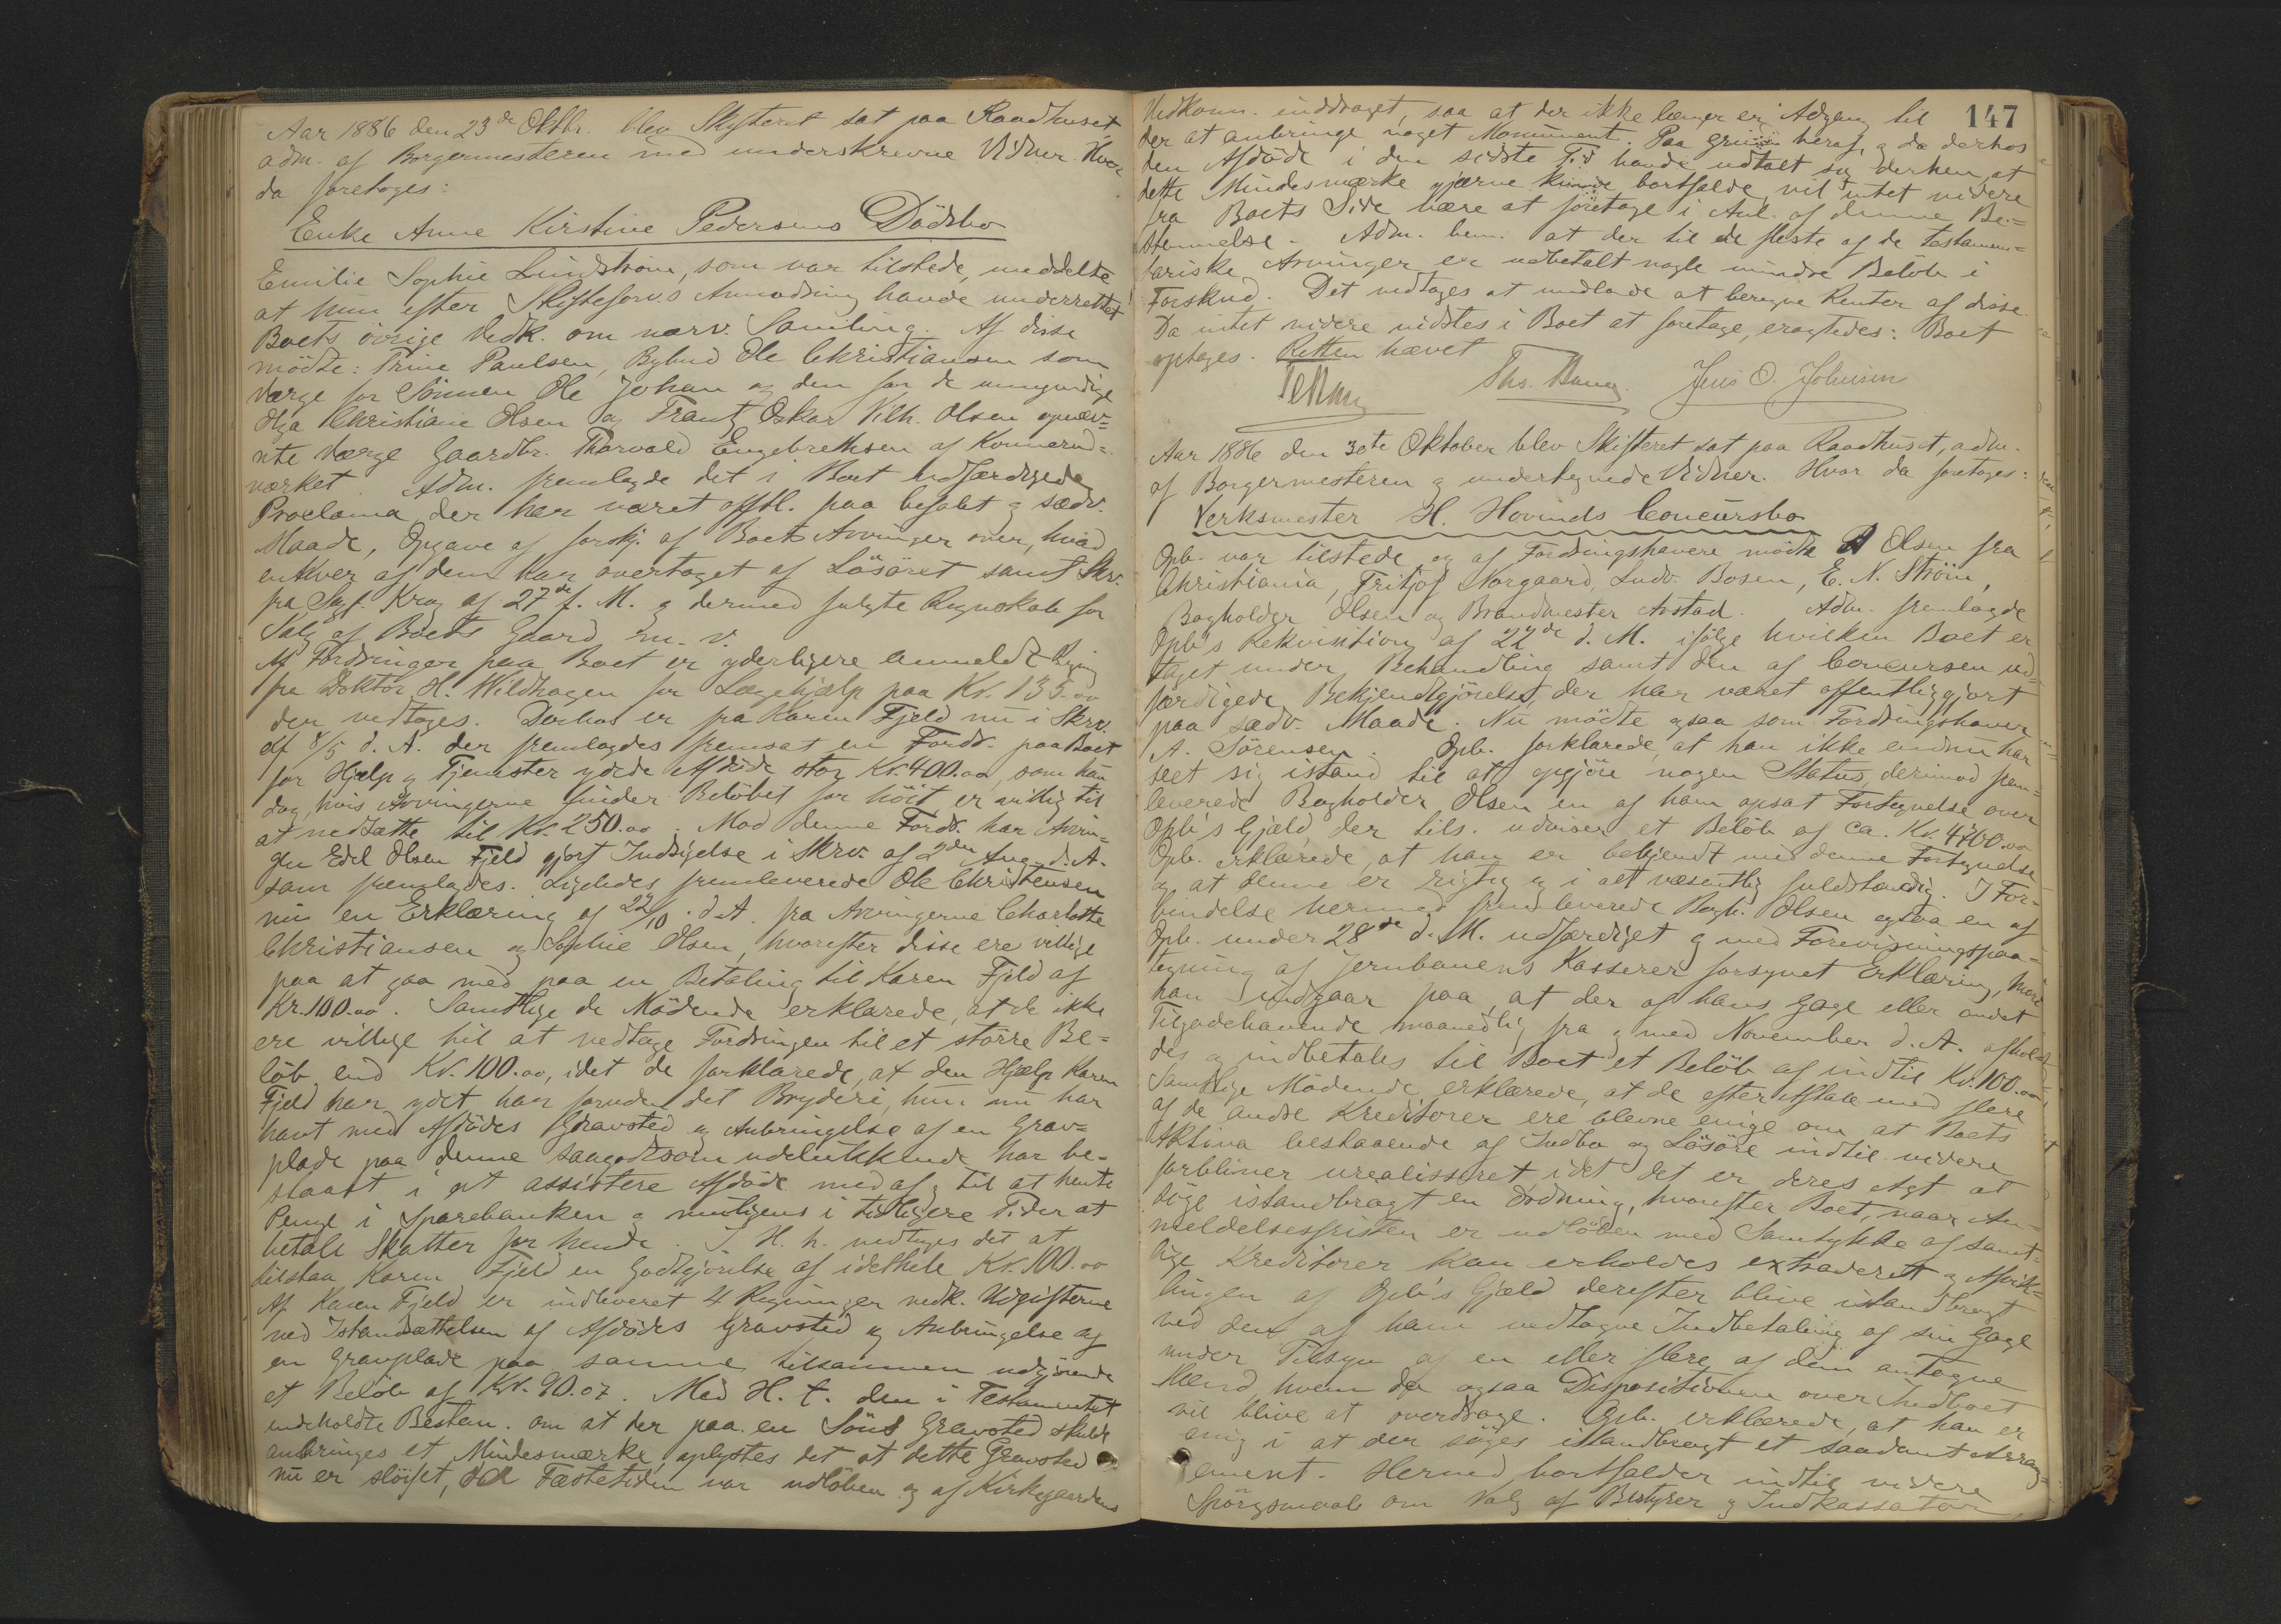 Aar 1886 den 23de Oktbr. blev Skifteret sat paa Raadhuset,
adm. af Borgermesteren med underskrevne Vidner. Hvor
da foretoges:
Enke Anne Kirstine Pedersens Dödsbo
Emilie Sophie Lindström, som var tilstede, meddelte
at hun efter Skifteforv's Anmodning havde underrettet
Boets övrige Vedk. om nærv. Samling. Af disse
mödte: Trine Paulsen, Bybud Ole Christiansen som
Værge for Sönnen Ole Johan og den for de umyndige
Olga Christiane Olsen og Frantz Oskar Vilh. Olsen opnæv-
nte Værge Gaardbr. Thorvald Engebrethsen af Konnerud-
værket. Adm. fremlagde det i Boet udfærdigede
Proclama, der har været offtl. paa befalet og sædv.
Maade, Opgave af forskj. af Boets Arvinger over, hvad
enhver af dem har overtaget af Lösöret samt Skr.
fra Sagf. Krog af 27de f. M. og dermed fulgte Regnskab for
Salg af Boets Gaard m. v.
Af Fordringer paa Boet er yderligere anmeldt Regning
fra Doktor H. Wildhagen for Lægehjælp paa Kr. 135.00
der vedtoges. Derhos er fra Karen Fjeld nu i Skrv.
af 8/5 d. A. der fremlagdes fremsat en Fordr. paa Boet
for Hjælp og Tjenester ydede Afdöde stor Kr. 400.00, som hun
dog, hvis Arvingerne finder Belöbet for höit, er villig til
at nedsætte til Kr. 250.00. Mod denne Fordr. har Arvin-
gen Edel Olsen Fjeld gjort Indsigelse i Skrv. af 2den Aug. d. A.
som fremlagdes. Ligeledes fremleverede Ole Christensen
nu en Erklæring af 22/10 d. A. fra Arvingerne Charlotte
Christiansen og Sophie Olsen, hvorefter disse ere villige
paa at gaa med paa en Betaling til Karen Fjeld af
Kr. 100.00. Samtlige de Mödende erklærede, at de ikke
ere villige til at vedtage Fordringen til et större Be-
löb end Kr. 100.00, idet de forklarede, at den Hjælp Karen
Fjeld har ydet har foruden det Bryderi, hun nu har
havt med Afdödes Gravsted og Anbringelse af en Grav-
plade paa denne saagodtsom udelukkende har be-
staaet i at assistere Afdöde med af og til at hente
Penge i Sparebanken og muligens i tidligere Tider at
betale Skatter for hende. I H. h. vedtoges det at
tilstaa Karen Fjeld en Godtgjörelse af idethele Kr. 100.00
Af Karen Fjeld er indleveret 4 Regninger vedk. Udgifterne
ved Istandsættelsen af Afdödes Gravsted og Anbringelse af
en Gravplade paa samme tilsammen udgjörende
et Belöb af Kr. 90.07. Med H. t. den i Testamentet
indeholdte Bestem. om at der paa en Söns Gravsted skulde
anbringes et Mindesmærke, oplystes det at dette Gravsted
nu er slöifet, da Fæstetiden var udlöben og af Kirkegaardens
147
Vedkomm. inddraget, saa at der ikke længer er Adgang til
der at anbringe noget Monument. Paa Grund heraf, og da derhos
den Afdöde i den sidste Tid havde udtalt sig derhen, at
dette Mindesmærke gjærne kunde bortfalde, vil intet videre
fra Boets Side være at foretage i Anl. af denne Be-
stemmelse. Adm. bem. at der til de fleste af de testamen-
tariske Arvinger er udbetalt nogle mindre Belöb i
Forskud. Det vedtoges at undlade at beregne Renter af disse.
Da intet videre vidstes i Boet at foretage, eragtedes: Boet
optages. Retten hævet
Ths. Jens O. Johnsen
Aar 1886 den 30te Oktober blev Skifteret sat paa Raadhuset, adm.
af Borgermesteren og undertegnede Vidner. Hvor da foretoges:
Verksmester H. Hovinds Concursbo
Opb. var tilstede og af Fordringshavere mödte A Olsen fra
Christiania, Fritjof Norgaard, Ludv. Bosen, E. N. Ström,
Bogholder Olsen og Brandmester Arstad. Adm. fremlagde
Opb's Rekvisition af 22de d. M. ifölge hvilken Boet er
taget under Behandling samt den af Concursen ud-
færdigede Bekjendtgjörelse, der har været offentliggjort
paa sædv. Maade. Nu mödte ogsaa som Fordringshaver
A. Sörensen. Opb. forklarede, at han ikke endnu har
seet sig istand til at opgjöre nogen Status, derimod frem-
leverede Bogholder Olsen en af ham opsat Fortegnelse over
Opb's Gjæld, der tils. udviser et Belöb af ca. Kr. 4400.00
Opb. erklærede, at han er bekjendt med denne Fortegnelse
og at denne er rigtig og i alt væsentlig fuldstændig. I For-
bindelse hermed fremleverede Bogh. Olsen ogsaa en af
Opb. under 28de d. M. udfærdiget og med Forevisningspaa-
tegning af Jernbanens Kasserer forsynet Erklæring, hvori
han indgaar paa, at der af hans Gage eller andet
Tilgodehavende maanedlig fra og med November d. A. afhol-
des og indbetales til Boet et Belöb af indtil Kr. 100.00
Samtlige Mödende erklærede, at de efter Aftale med flere
af de andre Kreditorer ere blevne enige om at Boets
Aktiva bestaaende af Indbo og Lösöre indtil videre
forbliver urealisseret, idet det er deres Agt at
söge istandbragt en Ordning, hvorefter Boet, naar An-
meldelsesfristen er udlöben med Samtykke af samt-
lige Kreditorer kan erholdes extraderet og Afvik-
lingen af Opb's Gjæld derefter blive istandbragt
ved den af ham vedtagne Indbetaling af sin Gage
under Tilsyn af en eller flere af dem antagne
Mænd, hvem da ogsaa Dispositionen over Indboet
vil blive at overdrage. Opb. erklærede, at han er
enig i at der söges istandbragt et saadant Arrang-
ement. Hermed bortfalder indtil videre
Spörgsmaal om Valg af Bestyrer og Indkassator,